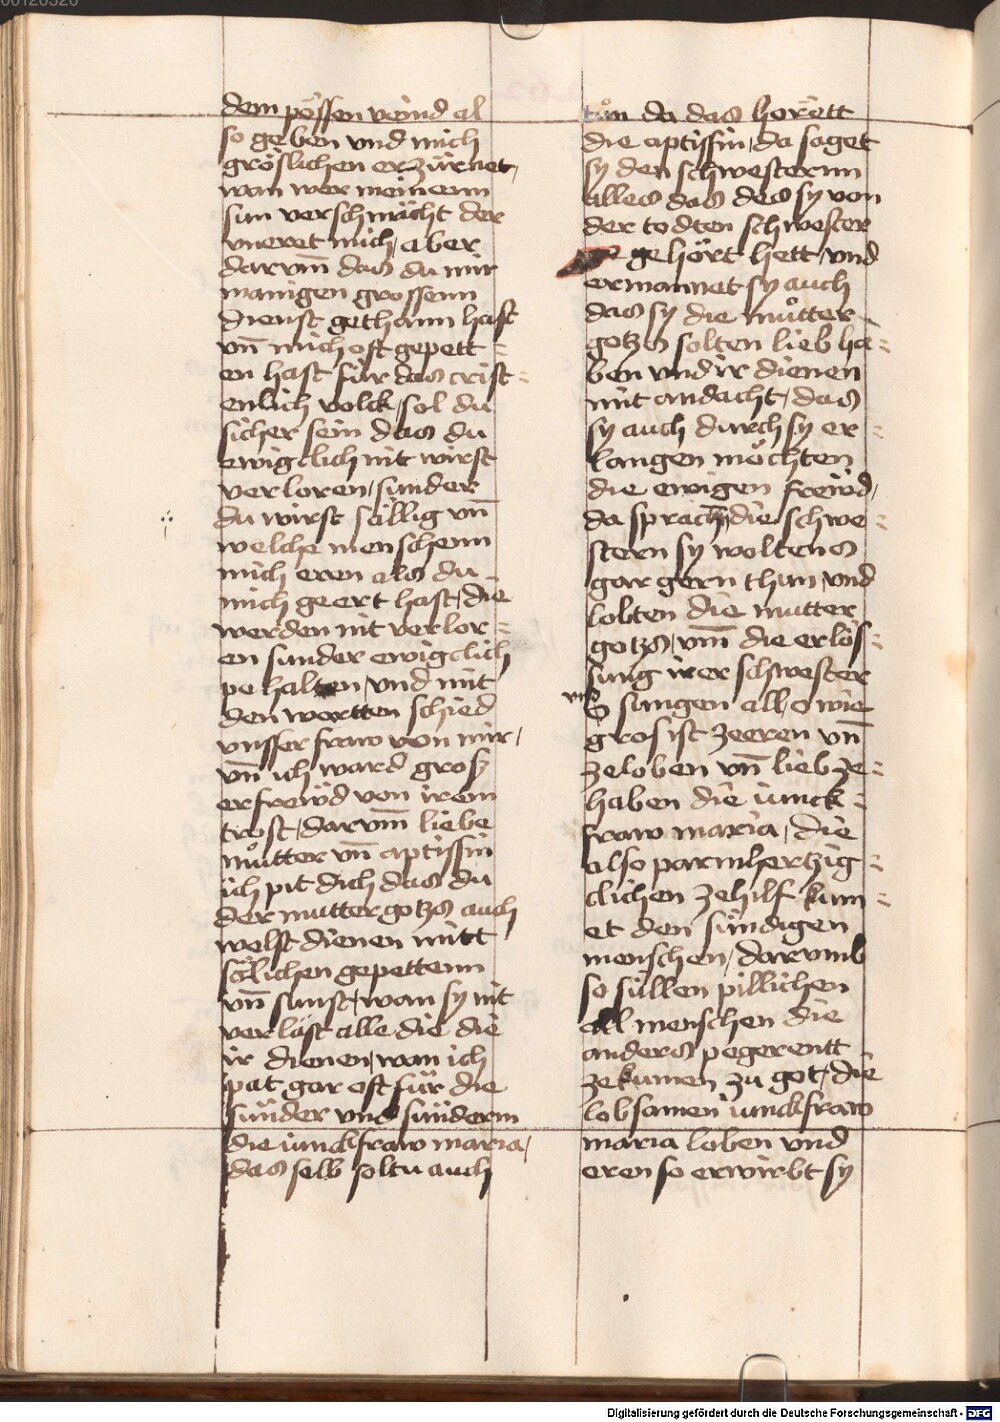 00120320
dem pössen veind al
so geben vnd mich
gröslichen erzürnet,
wan wer meinenn
sun verschmächt der
vneret mich, aber
darvm̄ das du mir
manigen grossenn
dienst gethann hast
vn̄ mich oft gepett =
en hast für das crist =
enlich volck, sol du
sicher sein das du
ewigclich nit wirst
verloren, sunder
du wirst sällig vn̄
welche menschenn
mich eren als du
mich geert hast, die
werden nit verlor =
en sunder ewigclich
pehalten, vnd mit
den wortten schied
vnsser fraw von mir,
vn̄ ich ward grosz
erfrewd von irem
trost, darvm̄ liebe
můtter vn̄ aptissin
ich pit dich das du
der mutter gotzs auch
welst dienen mitt
sölichen gepettenn
vn̄ sunst, wan sy nit
verläst alle die die
ir dienen, wan ich
pat gar oft für die
sünder vnd sünderin
die iunckfraw maria,
das selb soltu auch
tůn da das horett
die aptissin, da saget
sy den schwesternn
alles das des sy von
der todten schwester
gehört hett, vnd
ermannet sy auch
das sy die můtter
gotzs solten lieb ha =
ben vnd ir dienen
mit andacht, das
sy auch durch sy er =
langen möchten
die ewigen frewd,
da sprach die schwe =
stern sy woltens
gar gern thun, vnd
lobten die mutter
gotzs, vm̄ die erlös =
sung irer schwester
vnd
sungen all, o wie
gros ist zeeren vn̄
zeloben vn̄ lieb ze =
haben die iunck =
fraw maria, die
also parmhertzig =
clichen zehilf kum =
et den sündigen
menschen, darvmb
so süllen pillichen
all menschen die
anders pegerentt
zekumen zu got, die
lobsamen iunckfraw
maria loben vnd
eren so erwirbt sy
Digitalisierung gefördert durch die Deutsche Forschungsgemeinschaft - DFG